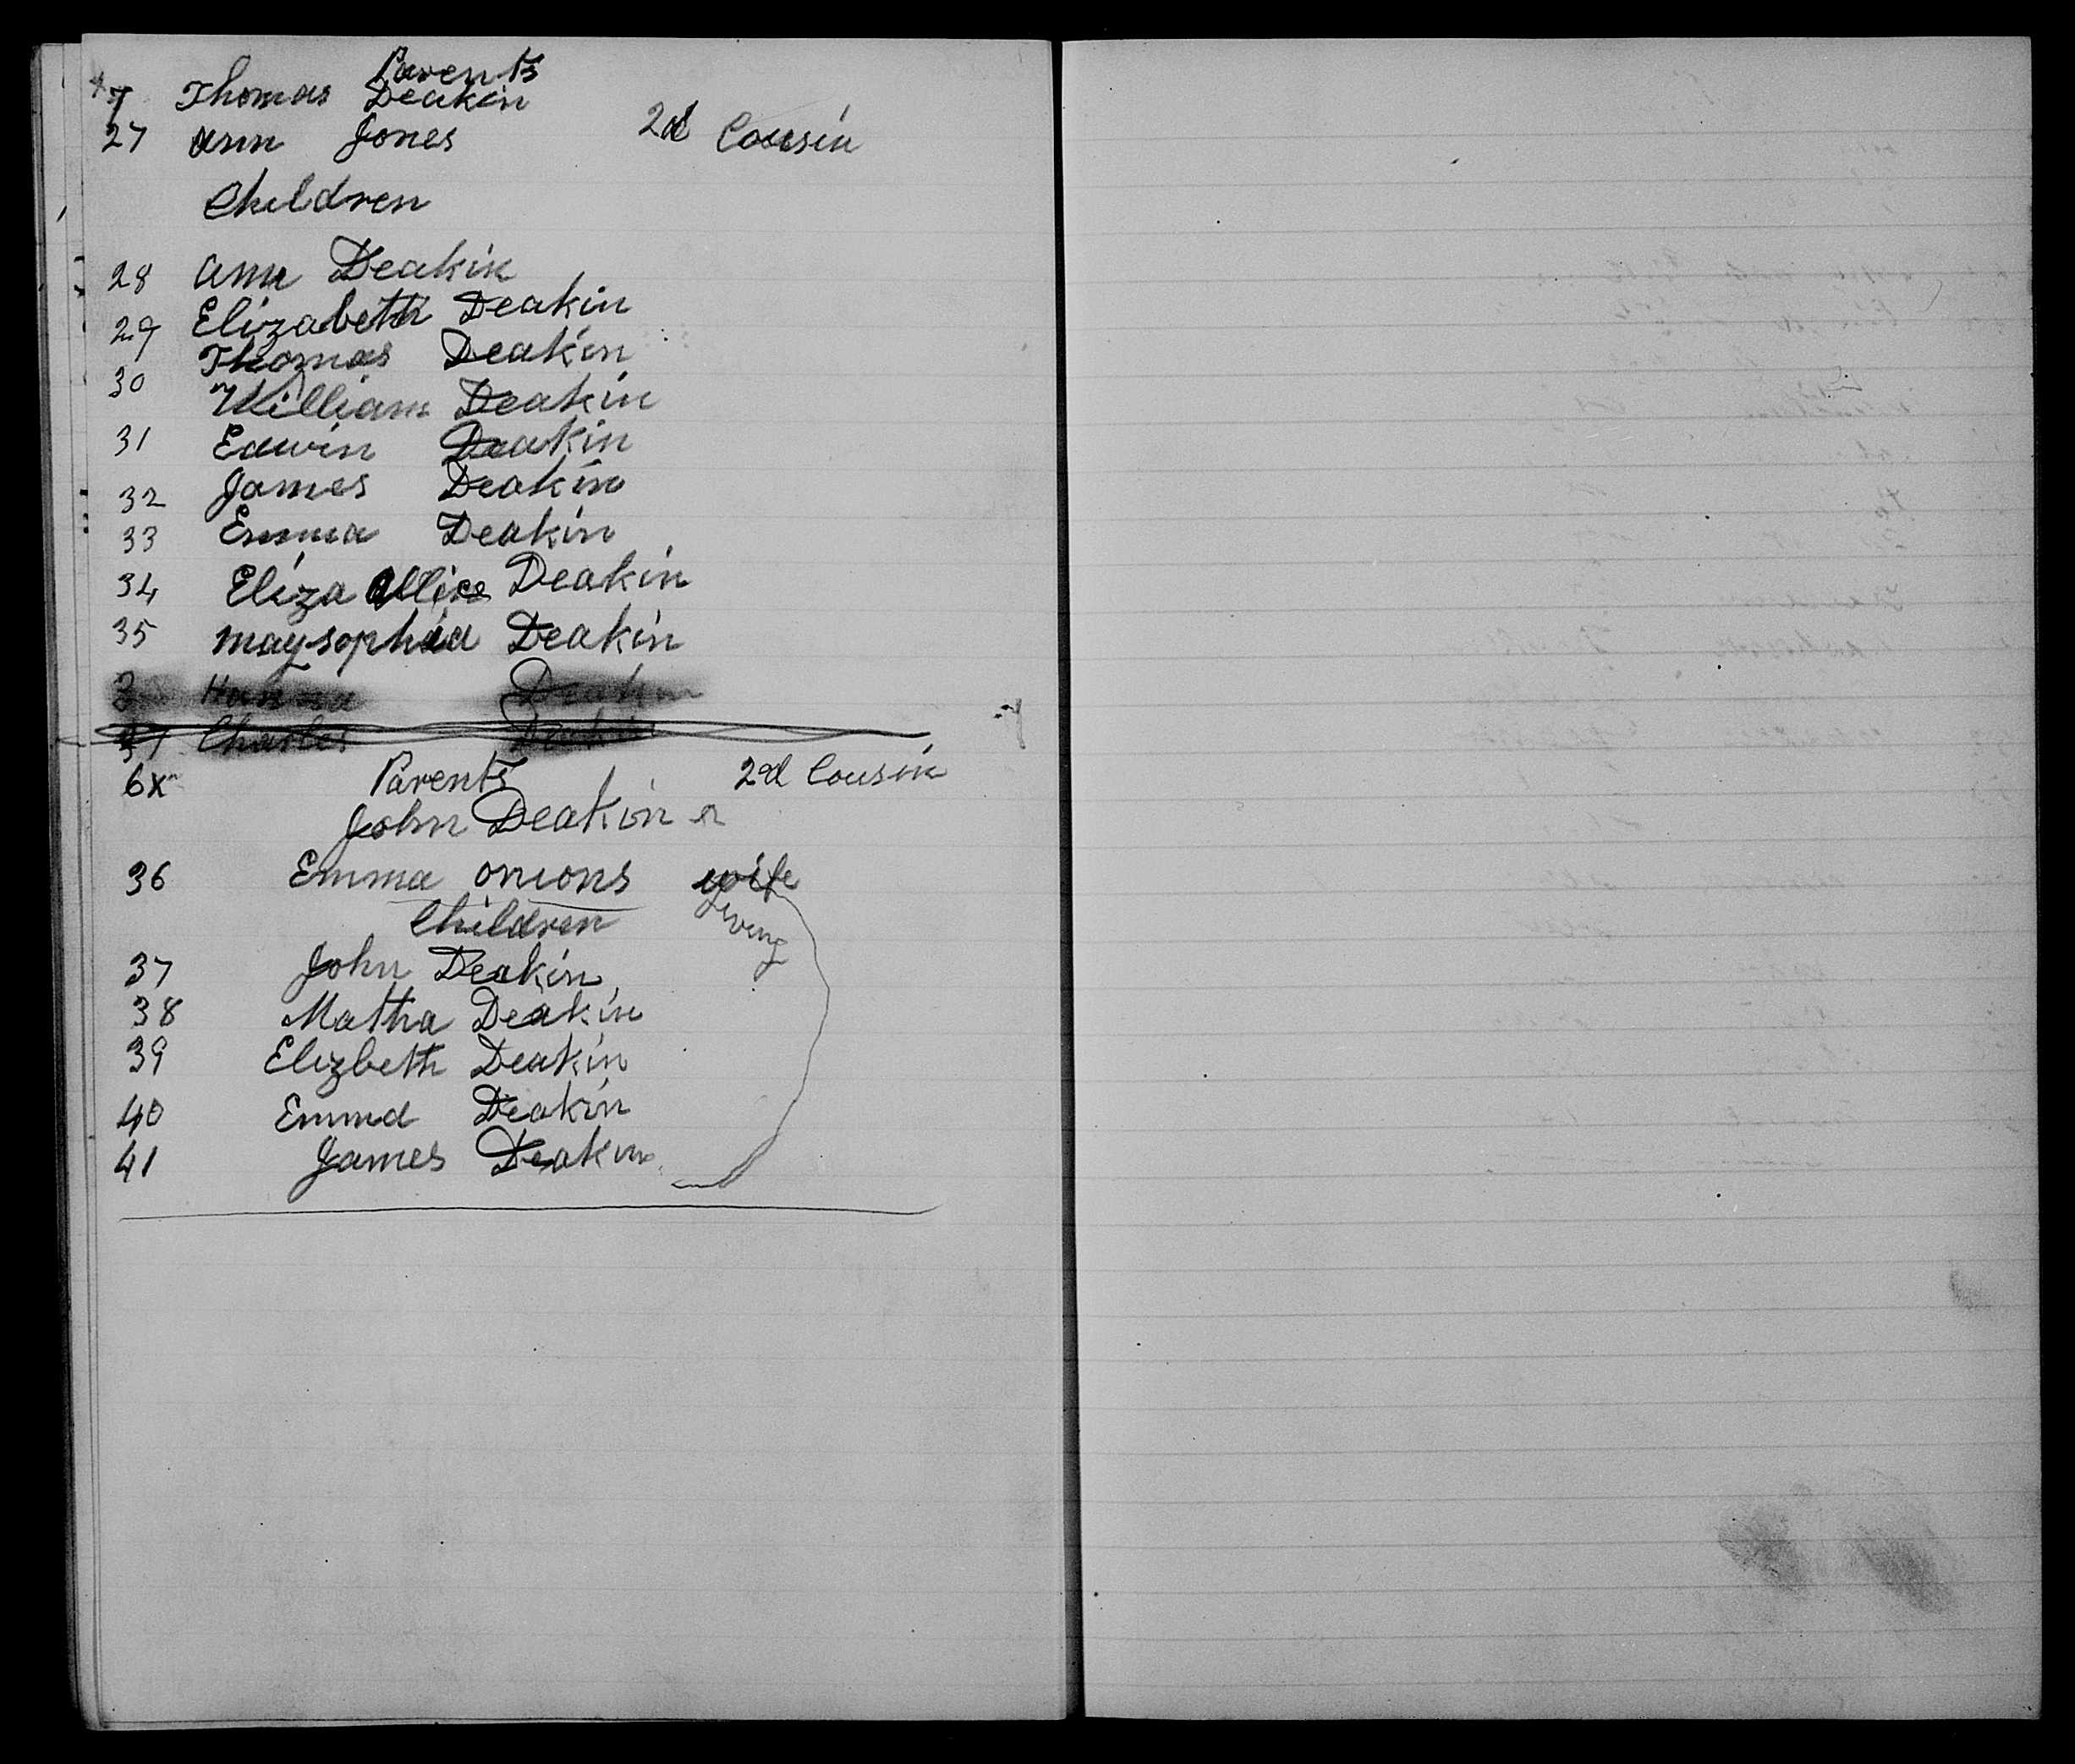 Parents
7 Thomas Deakin
27 ann Jones 2d Cousin
Children
28 ann Deakin
29 Elizabeth Deakin
Thomas Deakin
30
William Deakin
31 Edwin Deakin
32 James Deakin
33 Emma Deakin
34 Eliza Allice Deakin
35 maysophia Deakin
3 Hanna Deakin
37 Charles Deakin
6x Parents 2d Cousin
John Deakin
36 Emma onions wife
Children living
37 John Deakin
38 Matha Deakin
39 Elizbeth Deakin
40 Emma Deakin
41 James Deakin